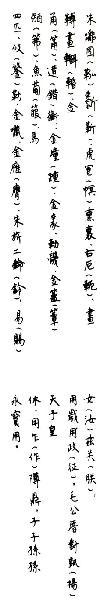 朱鞹(鞃)靳(靳)、虎冟(幎)熏裏、右厄(軛)、畫
轉、畫(輯)、金
甬(筩)、造(錯)衡、金踵(踵)、金豙、金簟
弼(茀)、魚葡(箙)、馬
四匹、攸(鋚)勒、金、金雁(膺)、朱旂二鈴(鈴)、易(賜)
女(汝)茲关(朕),
用歲用政(征)。毛公對(揚)
天子皇
休,用乍(作)尊鼎。子子孫孫
永寶用。